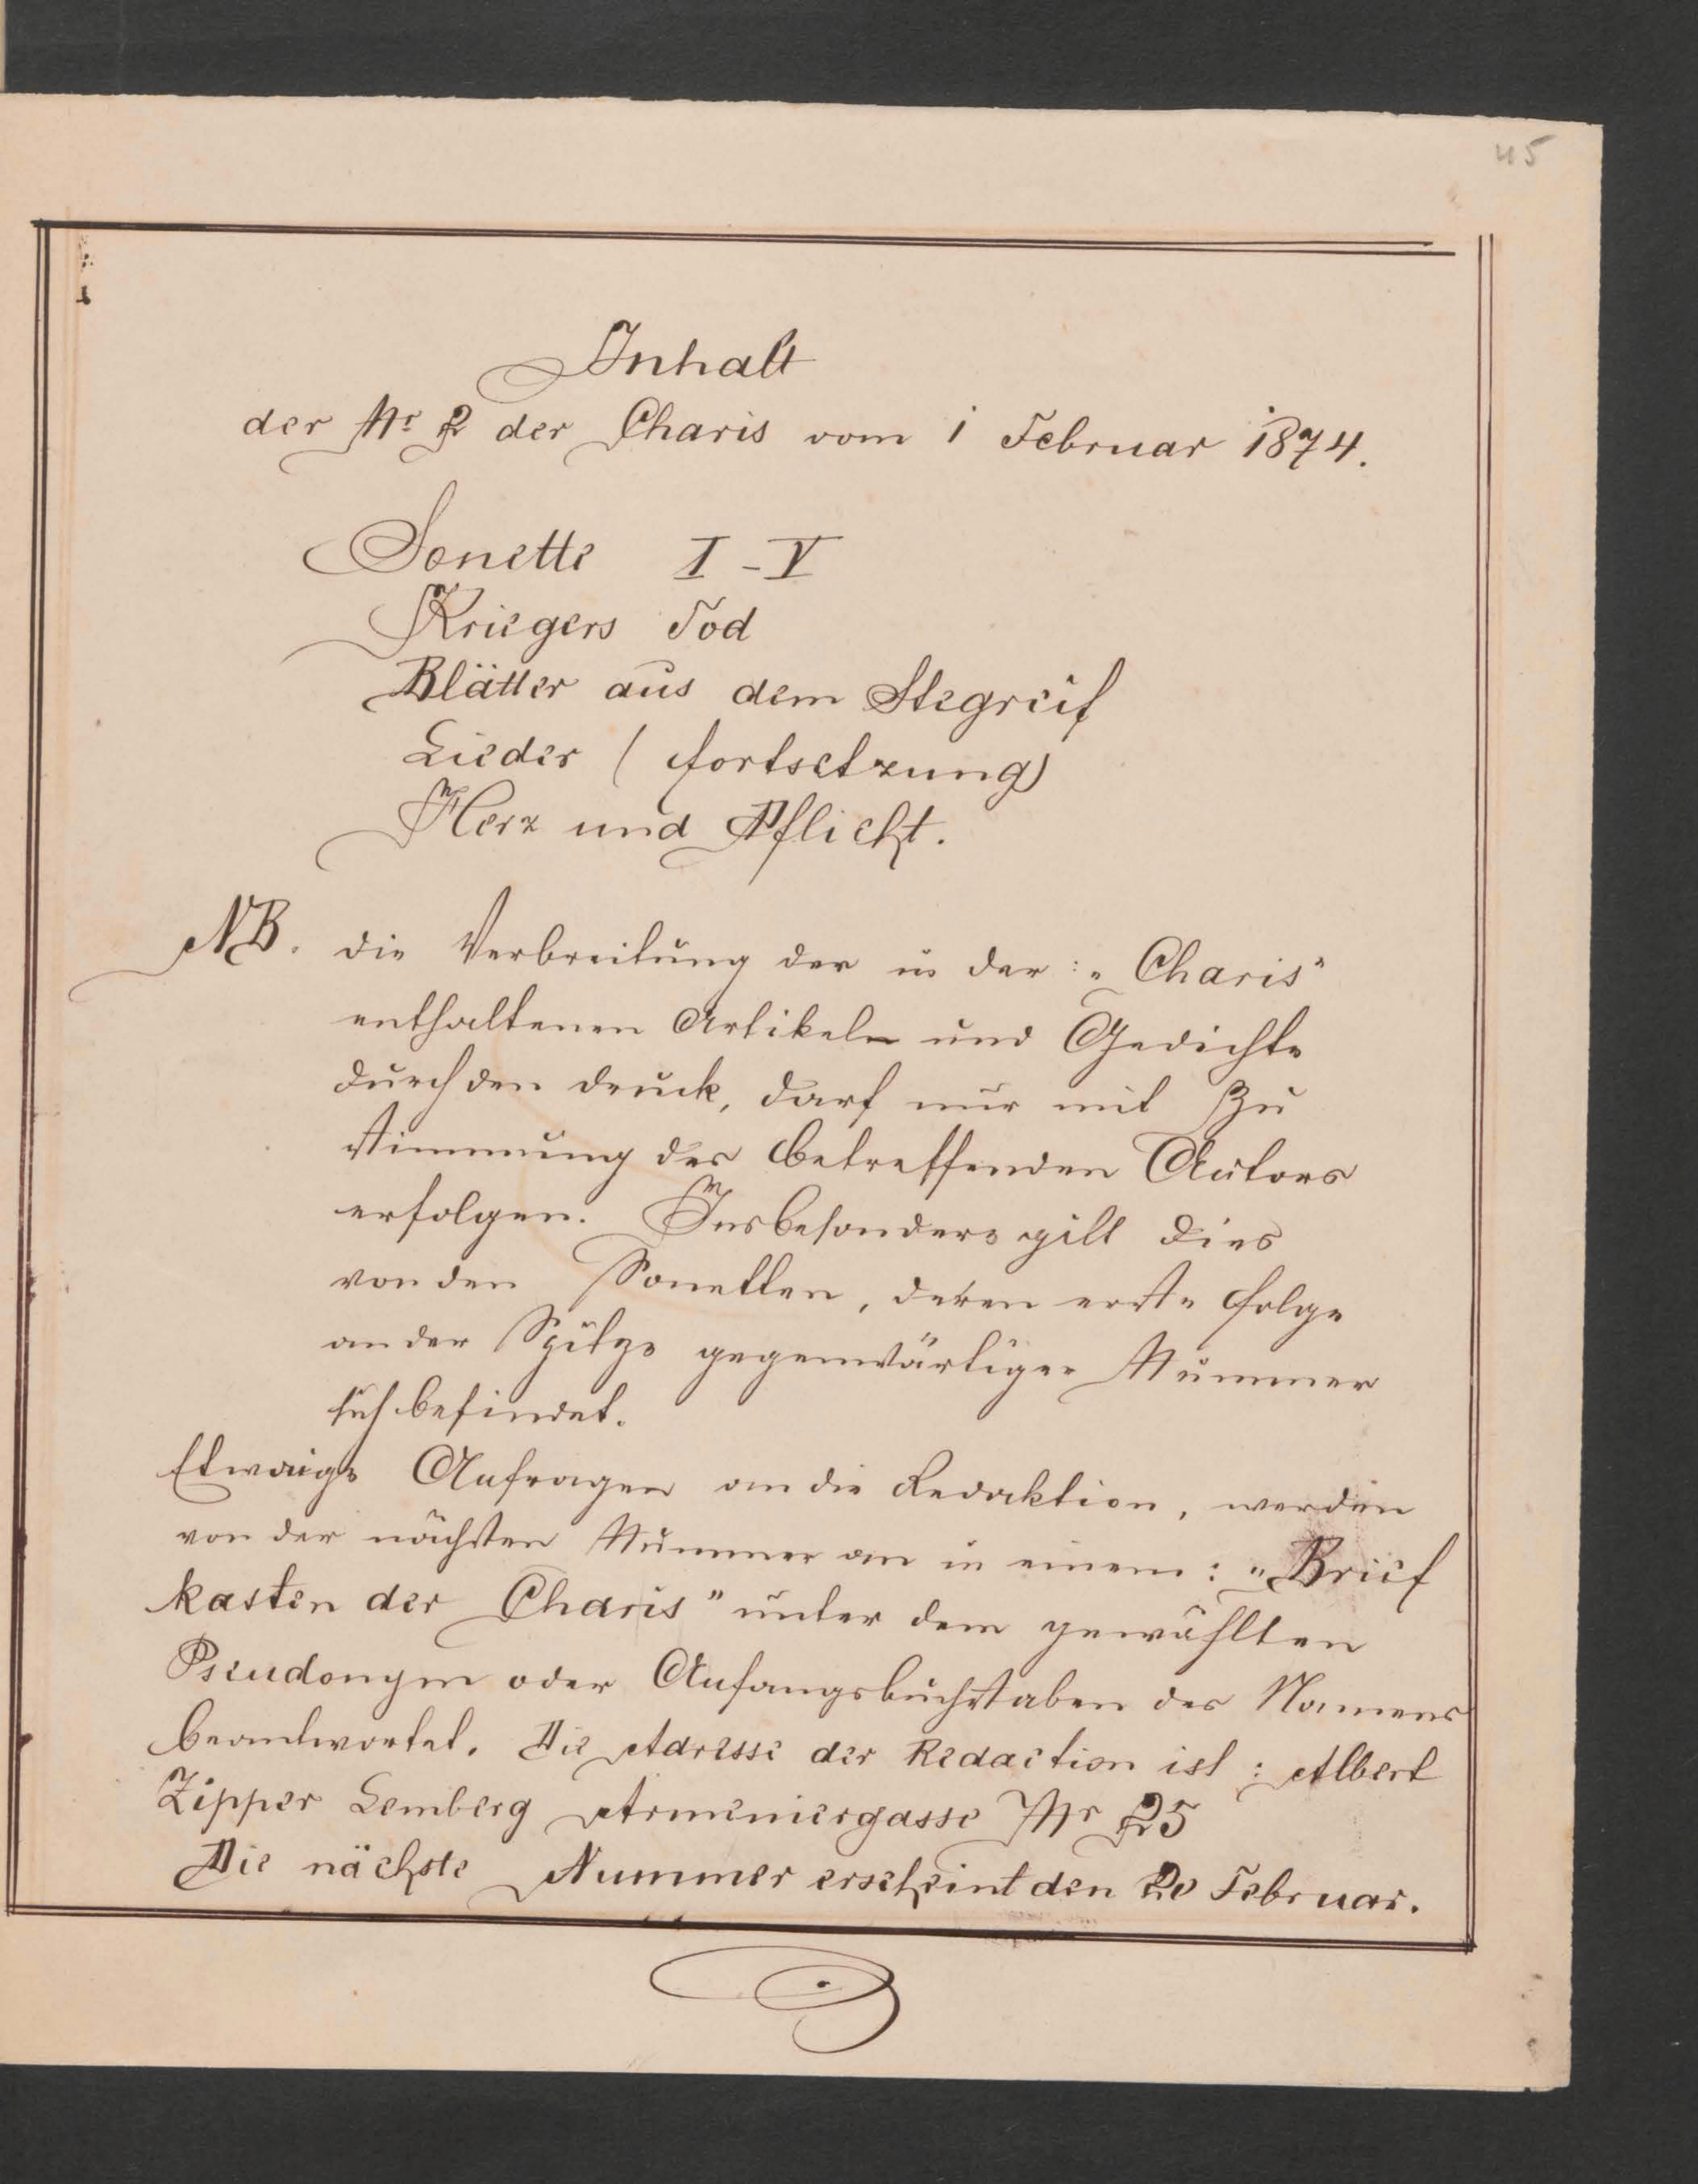 45
Inhalt
der Nr 2 der Charis vom 1 Februar 1874.
Sonette I-V
Kriegers Tod
Blätter aus dem Stegreif
Lieder (Fortsetzung)
Herz und Pflicht.
NB. Die Verbreitung der in der: „Charis"
enthaltenen Artikeln und Gedichte
durch den Druck, darf nur mit Zu
stimmung des betreffenden Autors
erfolgen. Insbesondere gilt dies
von den Sonetten, deren erste Folge
an der Spitze gegenwärtiger Nummer
sich befindet.
Etwaige Anfragen an die Redaktion, werden
von der nächsten Nummer an in einem: „Brief
kasten der Charis" unter dem gewählten
Pseudonym oder Anfangsbuchstaben des Namens
beantwortet. Die Adresse der Redaction ist: Albert
Zipper Lemberg Armeniergasse Nr 25
Die nächste Nummer erscheint den 20 Februar.